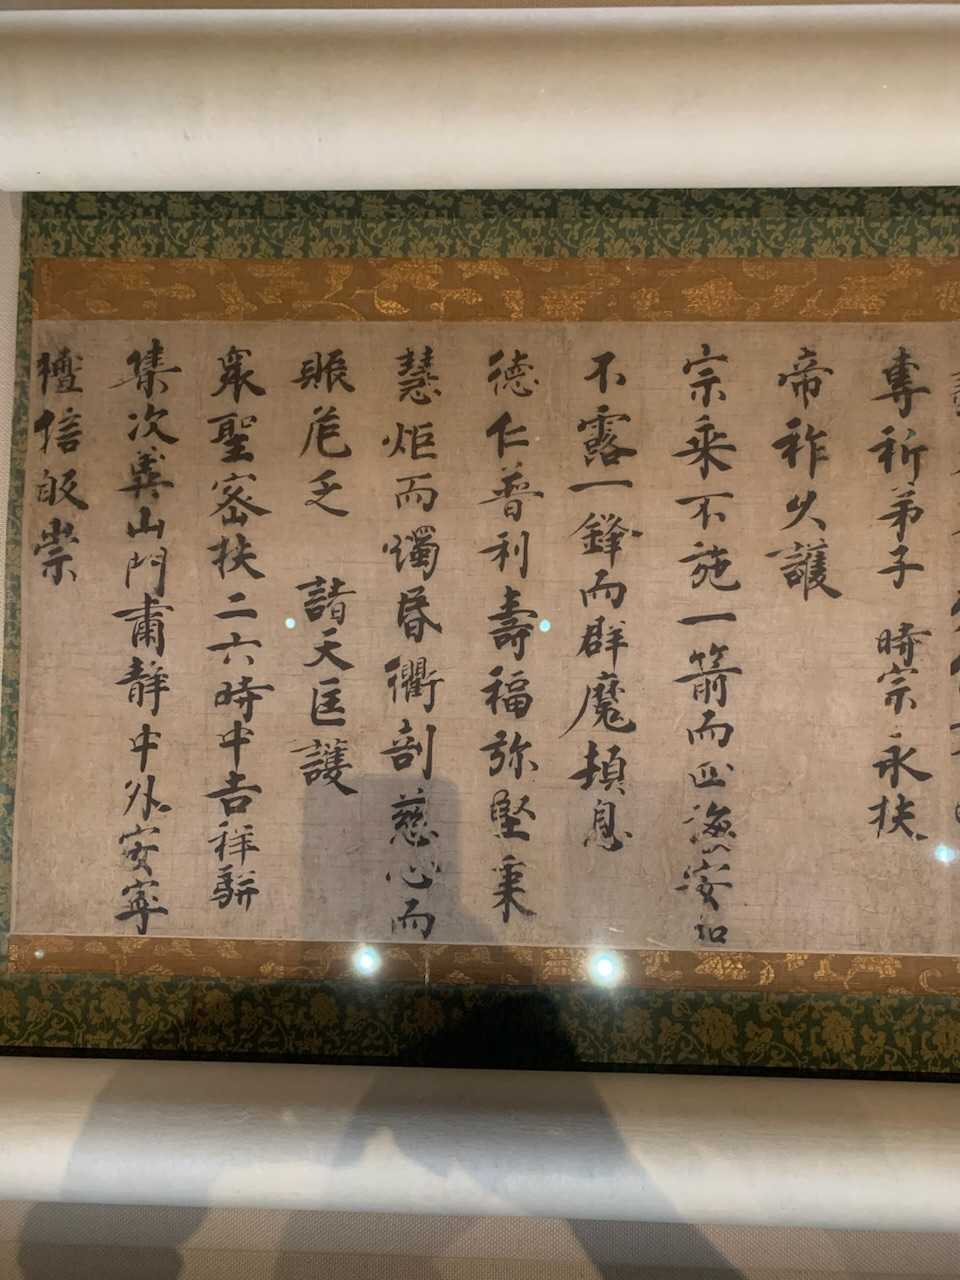 專祈弟子 時宗永扶
帝祚久護
宗乘不施一箭而四海安和
不露一鋒而群魔頓息
德仁普利壽福弥堅秉
慧炬而燭昏衢剖慈心而
賑危乏 諸天匡護
衆聖密扶二六時中吉祥駢
集次冀山門肅靜中外安寧
檀信皈崇